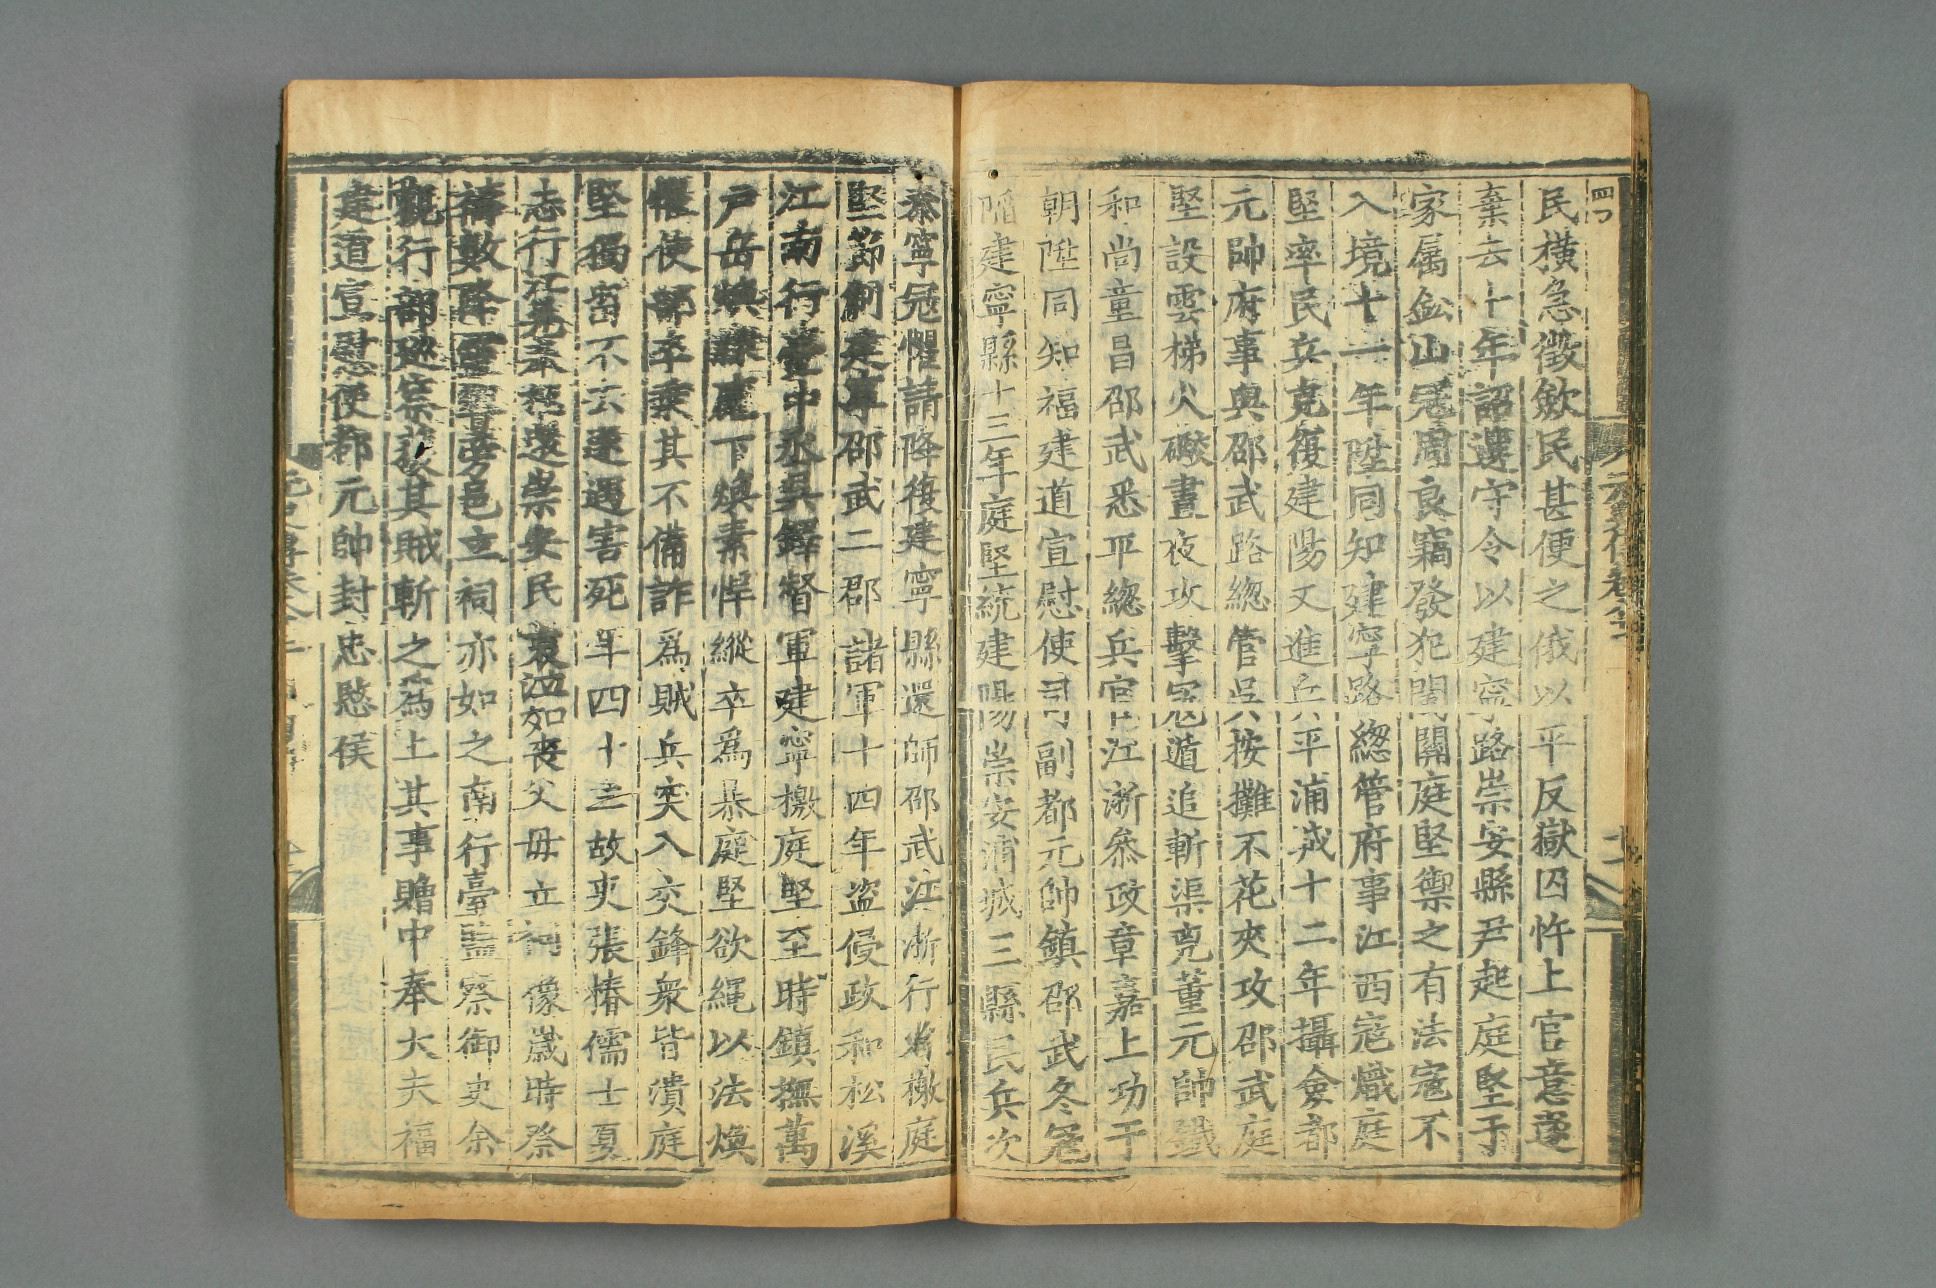 民橫急徵斂民甚便之俄以平反獄囚忤上官意遂
棄去十年詔遴守令以建寧路崇安縣尹起庭堅于
家屬鈆山寇周良竊發犯閩關庭堅禦之有法寇不
入境十一年陞同知建寧路總管府事江西寇熾庭
堅率民兵克復建陽又進兵平浦城十二年攝僉都
元帥府事與邵武路總管吳按攤不花夾攻邵武庭
堅設雲梯火礮晝夜攻擊寇遁追斬渠兇董元帥鐵
和尚童昌邵武悉平總兵官江浙參政章嘉上功于
朝陞同知福建道宣慰使司副都元帥鎮邵武冬寇
陷建寧縣十三年庭堅統建陽崇安浦城三縣民兵次
泰寧冦懼請降復建寧縣還師邵武江浙行省檄庭
堅節制建寧邵武二郡諸軍十四年盜侵政和松溪
江南行臺中丞吳鐸督軍建寧檄庭堅至時鎮撫萬
戶岳煥隸麾下煥素悍縱卒爲暴庭堅欲繩以法煥
懼使部卒乘其不備詐爲賊兵突入交鋒衆皆潰庭
堅獨留不去遂遇害死年四十三故吏張椿儒士夏
志行江晃奉柩還崇安民哀泣如喪父母立祠像歲時祭
禱數降靈響旁邑立祠亦如之南行臺監察御史余
觀行部廵崇獲其賊斬之爲上其事贈中奉大夫福
建道宣慰使都元帥封忠愍侯